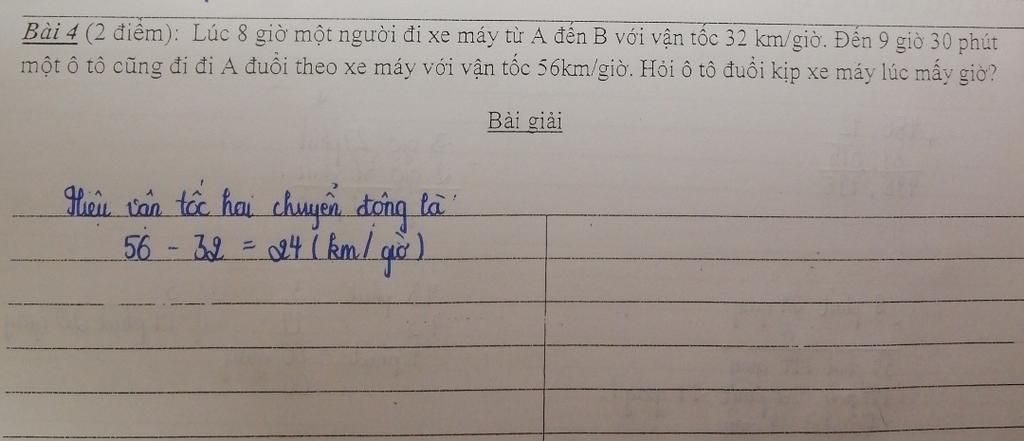 Bài 4 (2 điểm): Lúc 8 giờ một người đi xe máy từ A đến B với vận tốc 32 km/giờ. Đến 9 giờ 30 phút
một ô tô cũng đi đi A đuổi theo xe máy với vận tốc 56km/giờ. Hỏi ô tô đuổi kịp xe máy lúc mấy giờ?
Bài giải
Hiệu vận tốc hai chuyển động là
56 - 32 = 24 (km/giờ)